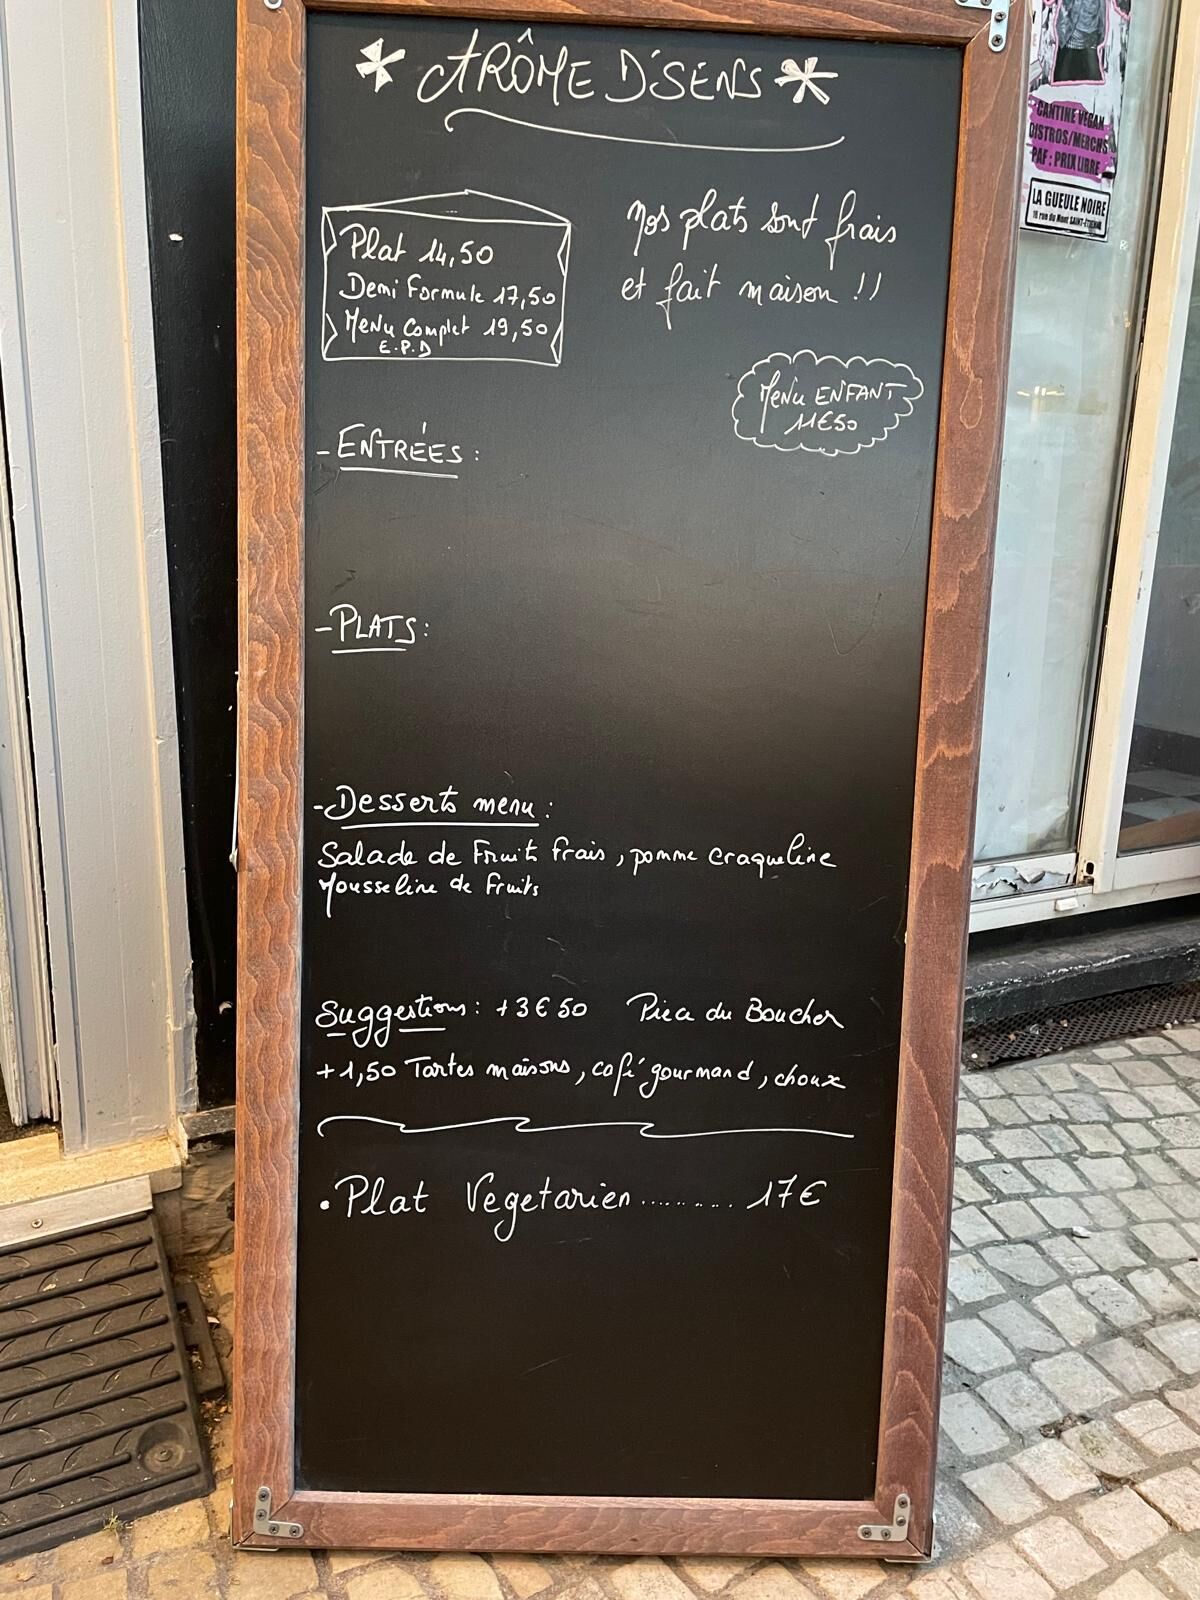 * ARÔME D'SENS *
Plat 14,50
Demi Formule 17,50
Menu Complet 19,50
E.P.D
Nos plats sont frais
et fait maison !!
Menu ENFANT
11€50
- ENTRÉES :
- PLATS :
- Desserts menu :
Salade de Fruit frais, pomme craqueline
Mousseline de Fruits
Suggestions : +3€50 Pièce du Boucher
+1,50 Tartes maisons, café gourmand, choux
• Plat Vegetarien ......... 17€
CANTINE VEGAN
DISTROS/MERCHS
PAF : PRIX LIBRE
LA GUEULE NOIRE
16 rue du Mont SAINT-ÉTIENNE